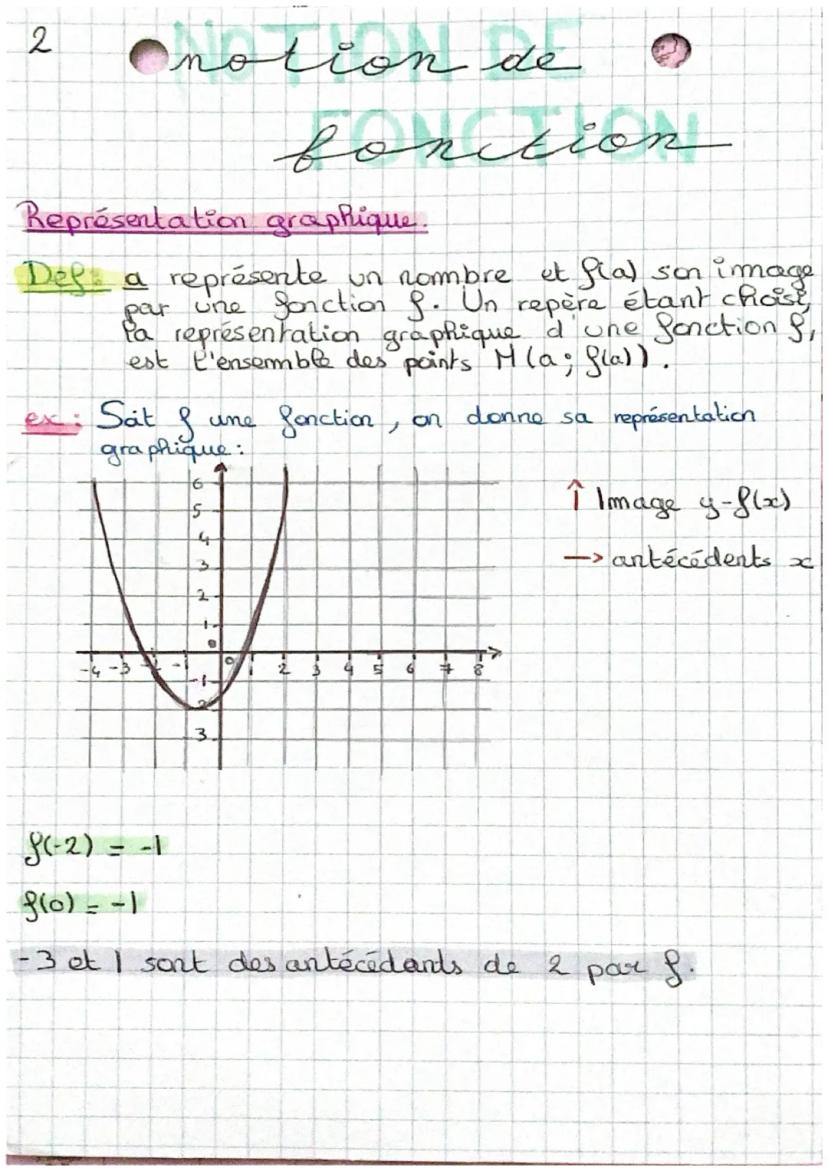 2
NOTION DE
notion de
FONCTION
fonction
Représentation graphique.
Def: a représente un nombre et f(a) son image
par une fonction f. Un repère étant choisi,
la représentation graphique d'une fonction f,
est l'ensemble des points M(a; f(a)).
ex: Soit f une fonction, on donne sa représentation
graphique:
6
5
4
3
2
1
0
-4 -3 -2 -1 0 1 2 3 4 5 6 7 8
-1
2
3
↑ Image y-f(x)
→ antécédents x
f(-2) = -1
f(0) = -1
-3 et 1 sont des antécédants de 2 par f.